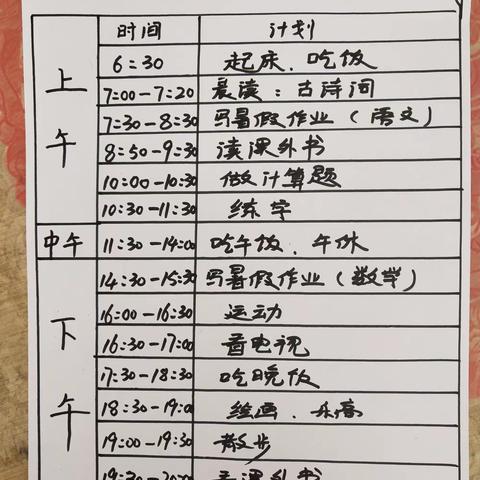 时间 计划
上午
6:30 起床、吃饭
7:00-7:20 晨读:古诗词
7:30-8:30 写暑假作业(语文)
8:50-9:30 读课外书
10:00-10:30 做计算题
10:30-11:30 练字
中午 11:30-14:00 吃午饭、午休
下午
14:30-15:30 写暑假作业(数学)
16:00-16:30 运动
16:30-17:00 看电视
17:30-18:30 吃晚饭
18:30-19:00 绘画、乐高
19:00-19:30 散步
19:30-20:00 课外书